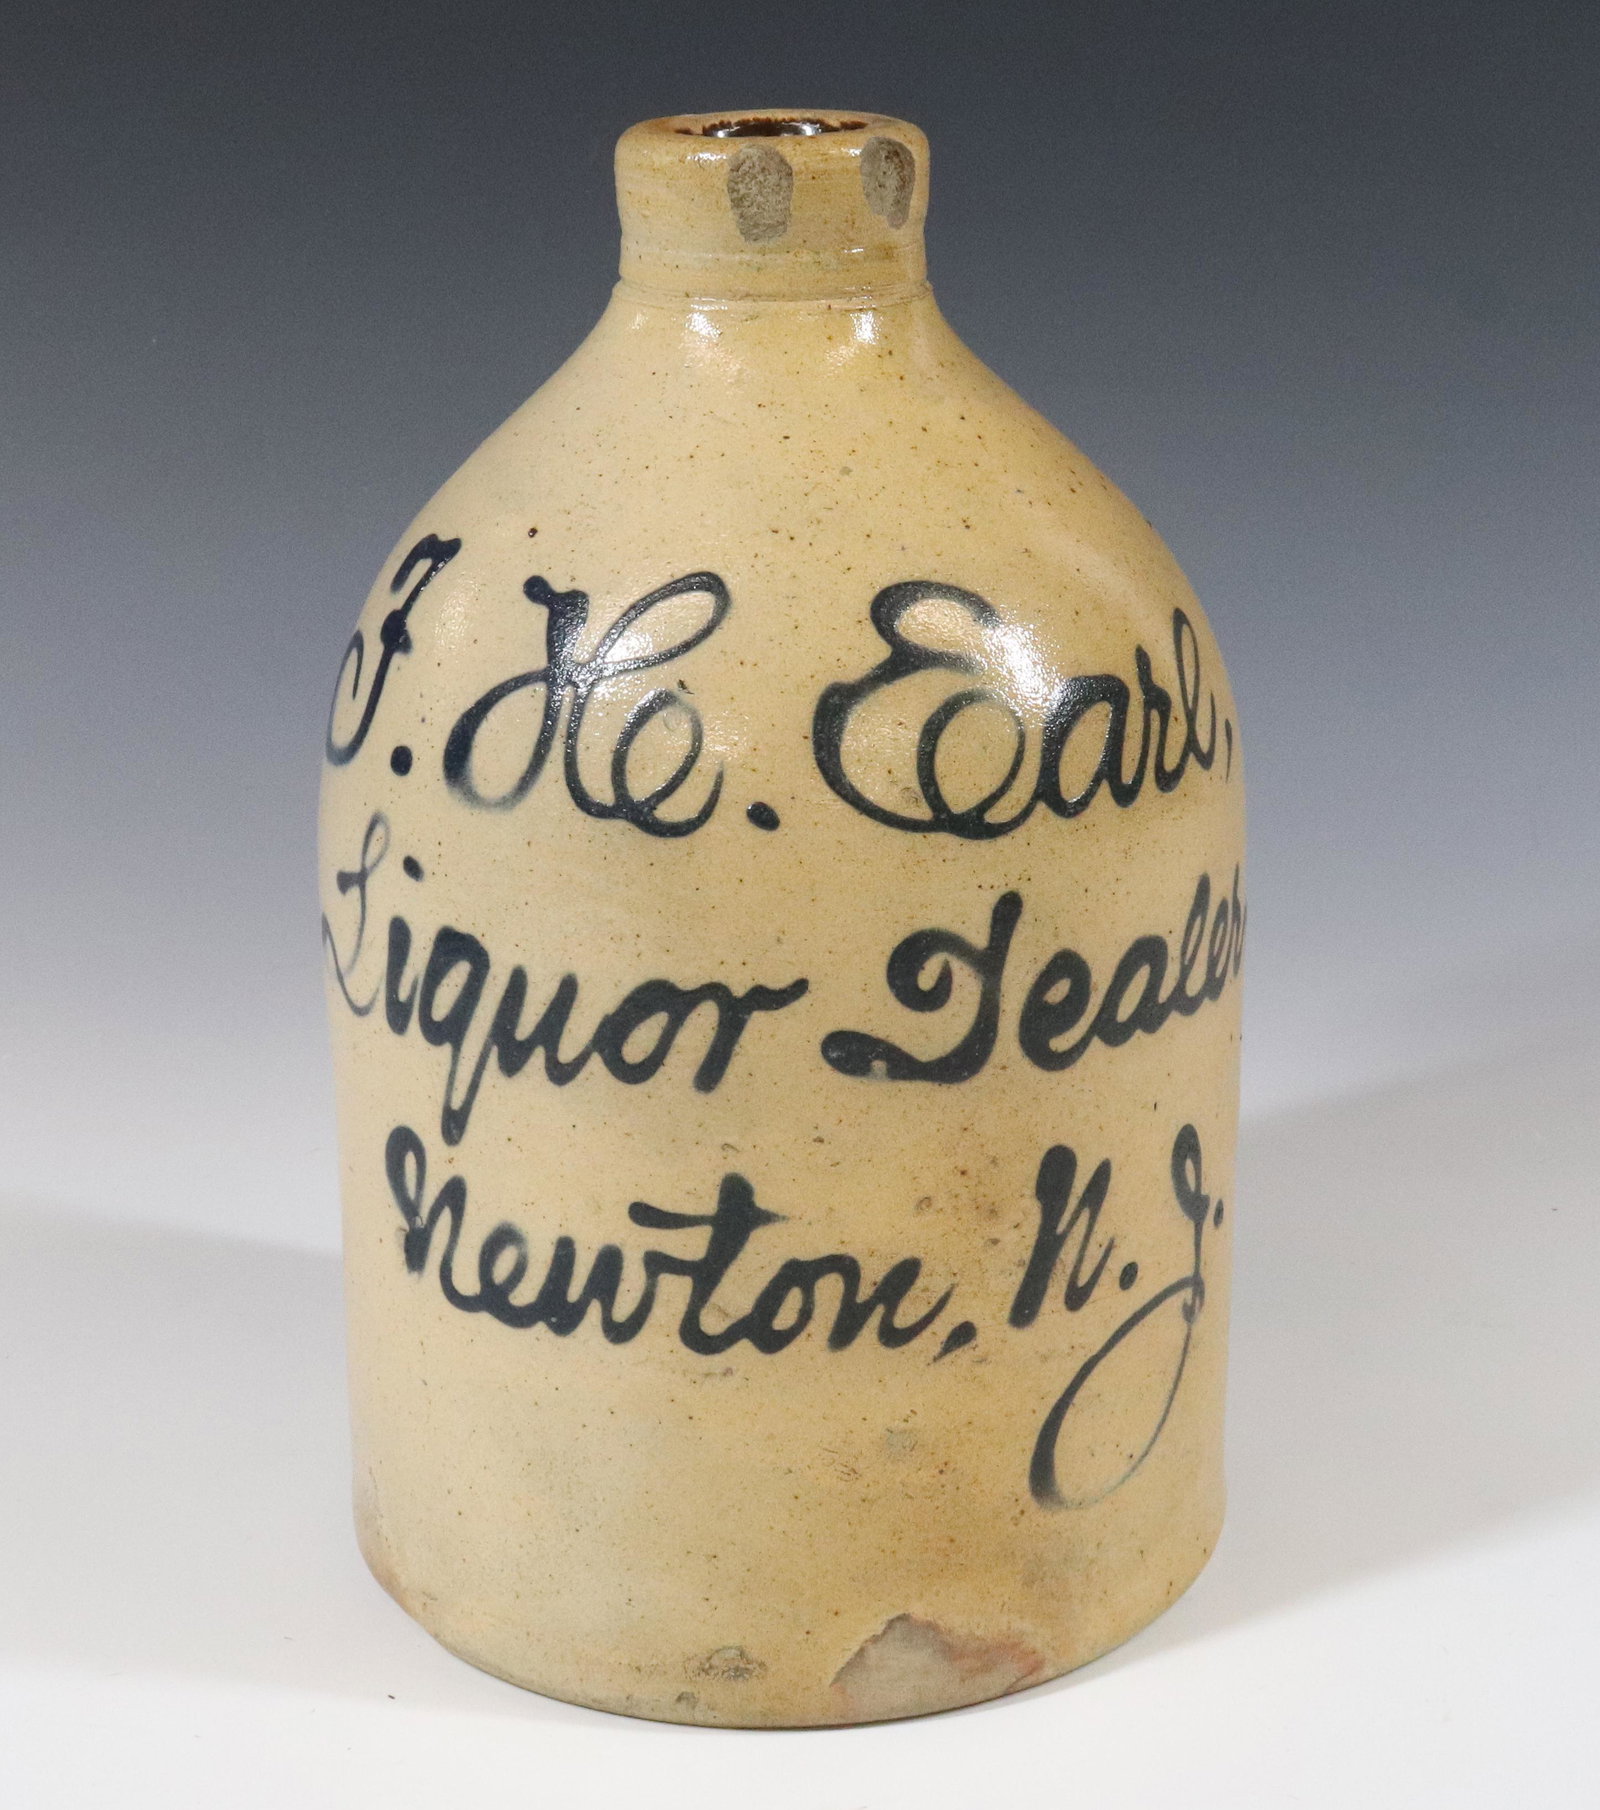 J. H. Earl,
Liquor Dealer
Newton, N. J.